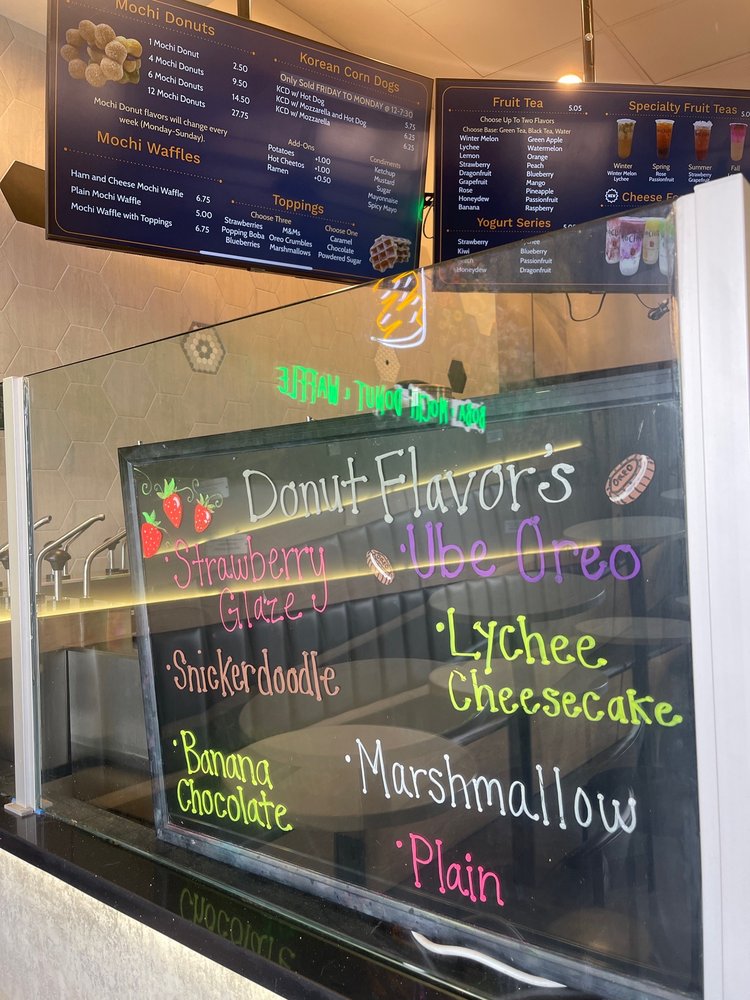 Mochi Donuts
1 Mochi Donut 2.50
4 Mochi Donuts 9.50
6 Mochi Donuts 14.50
12 Mochi Donuts 27.75
Mochi Donut flavors will change every
week (Monday-Sunday).
Mochi Waffles
Ham and Cheese Mochi Waffle 6.75
Plain Mochi Waffle 5.00
Mochi Waffle with Toppings 6.75
Korean Corn Dogs
Only Sold FRIDAY TO MONDAY @ 12-7:30
KCD w/ Hot Dog 5.75
KCD w/ Mozzarella and Hot Dog 6.25
KCD w/ Mozzarella 6.25
Add-Ons
Potatoes +1.00
Hot Cheetos +1.00
Ramen +0.50
Condiments
Ketchup
Mustard
Sugar
Mayonnaise
Spicy Mayo
Toppings
Choose Three
Strawberries M&Ms
Popping Boba Oreo Crumbles
Blueberries Marshmallows
Choose One
Caramel
Chocolate
Powdered Sugar
Fruit Tea 5.05
Choose Up To Two Flavors
Choose Base: Green Tea, Black Tea, Water
Winter Melon Green Apple
Lychee Watermelon
Lemon Orange
Strawberry Peach
Dragonfruit Blueberry
Grapefruit Mango
Rose Pineapple
Honeydew Passionfruit
Banana Raspberry
Yogurt Series 5.05
Strawberry Lychee
Kiwi Blueberry
Passionfruit
Honeydew Dragonfruit
Specialty Fruit Teas 5.0
Winter Spring Summer Fall
Winter Melon Rose Strawberry
Lychee Passionfruit Grapefruit
NEW Cheese Fo
BOBA · MOCHI DONUT · WAFFLE
Donut Flavor's
OREO
· Strawberry
Glaze
· Ube Oreo
· Snickerdoodle
· Lychee
Cheesecake
· Banana
Chocolate
· Marshmallow
· Plain